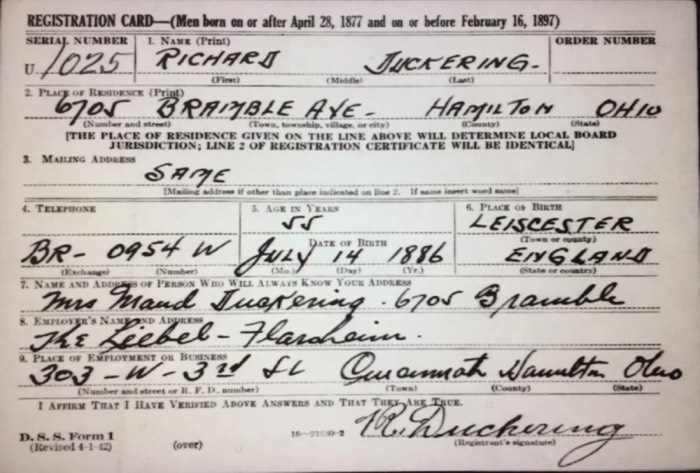 REGISTRATION CARD—(Men born on or after April 28, 1877 and on or before February 16, 1897)
SERIAL NUMBER 1. NAME (Print) ORDER NUMBER
U 1025 RICHARD DUCKERING.
(First) (Middle) (Last)
2. PLACE OF RESIDENCE (Print)
6705 BRAMBLE AVE- HAMILTON OHIO
(Number and street) (Town, township, village, or city) (County) (State)
[THE PLACE OF RESIDENCE GIVEN ON THE LINE ABOVE WILL DETERMINE LOCAL BOARD
JURISDICTION; LINE 2 OF REGISTRATION CERTIFICATE WILL BE IDENTICAL]
3. MAILING ADDRESS
SAME
[Mailing address if other than place indicated on line 2. If same insert word same]
4. TELEPHONE 5. AGE IN YEARS 6. PLACE OF BIRTH
55 LEISCESTER
DATE OF BIRTH (Town or county)
BR- 0954 W JULY 14 1886 ENGLAND
(Exchange) (Number) (Mo.) (Day) (Yr.) (State or country)
7. NAME AND ADDRESS OF PERSON WHO WILL ALWAYS KNOW YOUR ADDRESS
Mrs Maud Duckering. 6705 Bramble
8. EMPLOYER'S NAME AND ADDRESS
The Liebel-Flarsheim.
9. PLACE OF EMPLOYMENT OR BUSINESS
303-W-3rd St Cincinnati Hamilton Ohio
(Number and street or R. F. D. number) (Town) (County) (State)
I AFFIRM THAT I HAVE VERIFIED ABOVE ANSWERS AND THAT THEY ARE TRUE.
R. Duckering
D. S. S. Form 1 16—21630-2 (Registrant's signature)
(Revised 4-1-42) (over)